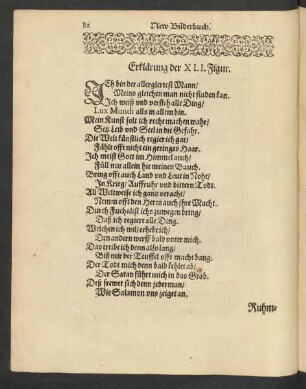 82 New Bilderbuch.
Erklärung der XLI. Figur.
ICh bin der allergiertest Mann/
Meins gleichen man nicht finden kan.
Ich weiß und versteh alle Ding/
Lux Mundi alls in allem bin.
Mein Kunst solt ich recht machen wahr/
Setz Leib vnd Seel in die Gefahr.
Die Welt künstlich regier ich gar/
Fählt offt nicht ein geringes Haar.
Ich meist Gott im Himmel auch/
Füll nur allein hie meinen Bauch.
Bring offt auch Land vnd Leut in Noht/
In Krieg/ Auffruhr vnd bittern Todt.
All Weltweise ich gang veracht/
Nemm offt den Herrn auch ihre Macht.
Durch Fuchslist ichs zuwegen bring/
Daß ich regier alle Ding.
Welchen ich wil/ erheb ich/
Den andern werff bald unter mich.
Das treibe ich denn also lang/
Biß mir der Teuffel offt macht bang.
Der Todt mich denn bald fehlet ab/
Der Satan führt mich in das Grab.
Deß frewet sich denn jederman/
Wie Salamon vns zeiget an.
Ruhm-